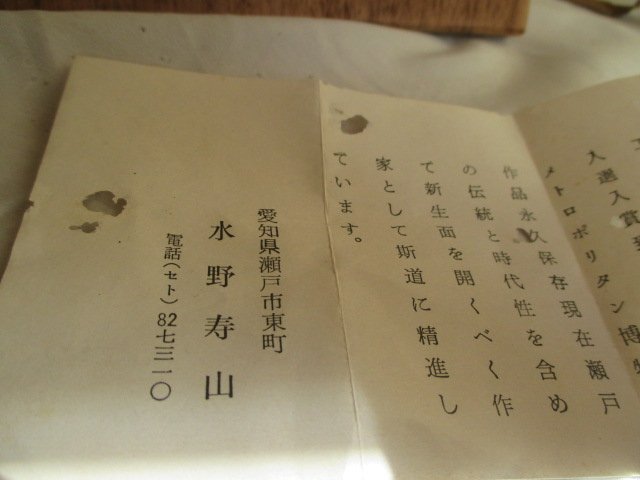 入選入賞
メトロポリタン博物
作品永久保存現在瀬戸
の伝統と時代性を含め
て新生面を開くべく作
家として斯道に精進し
ています。
愛知県瀬戸市東町
水野寿山
電話(セト)82七三一〇